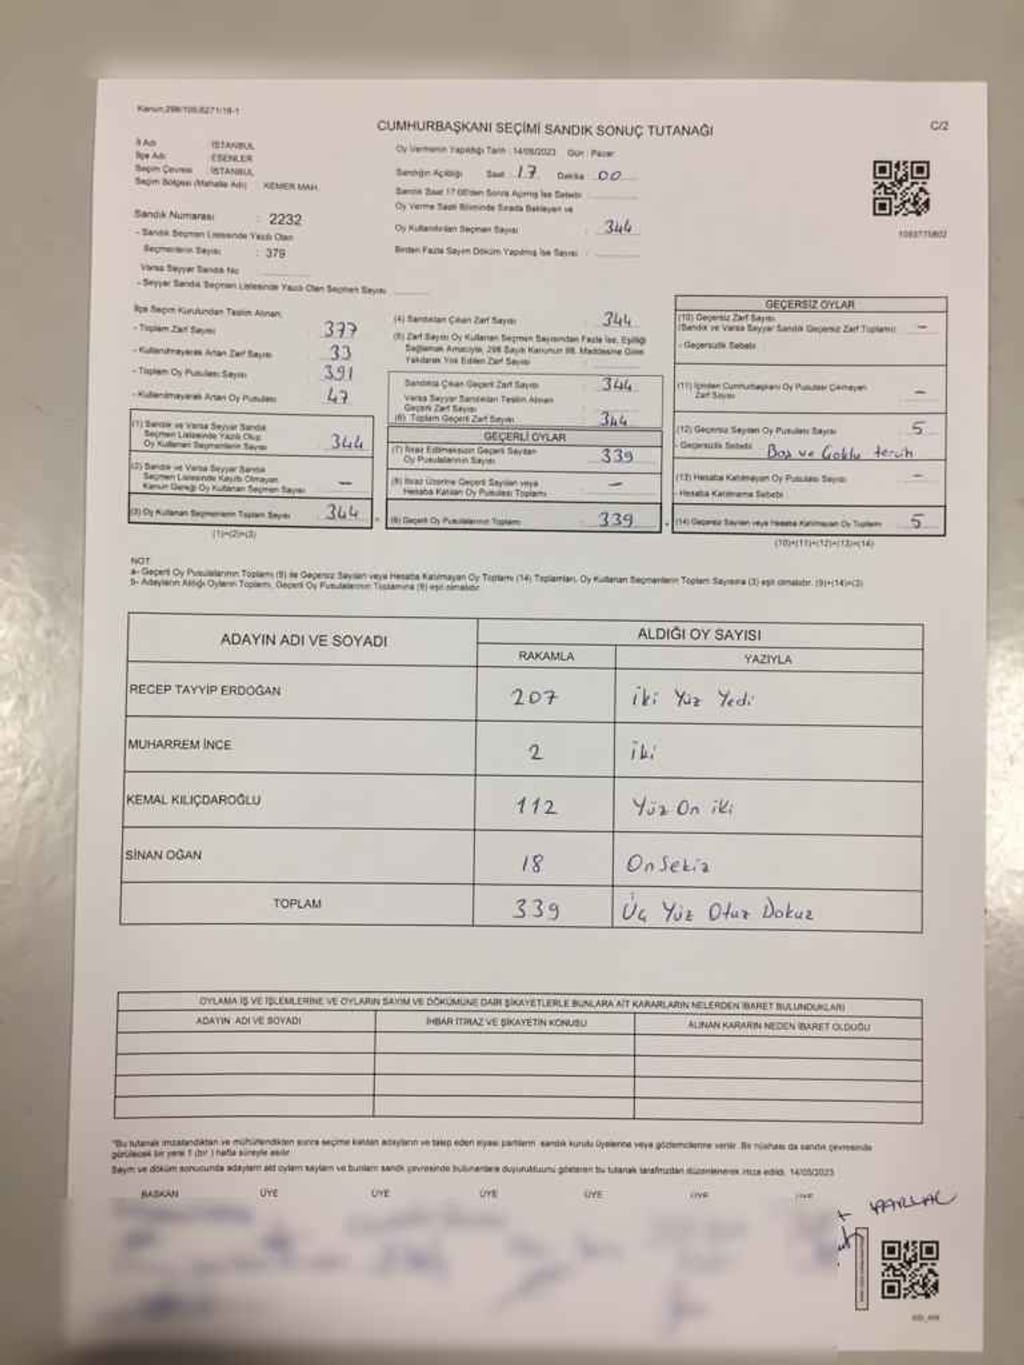 Kanun:298/105,6271/18-1
CUMHURBAŞKANI SEÇİMİ SANDIK SONUÇ TUTANAĞI
C/2
İl Adı : İSTANBUL
İlçe Adı : ESENLER
Seçim Çevresi : İSTANBUL
Seçim Bölgesi (Mahalle Adı) : KEMER MAH.
Oy Vermenin Yapıldığı Tarih : 14/05/2023 Gün : Pazar
Sandığın Açıldığı Saat 17 Dakika 00
Sandık Saat 17:00'den Sonra Açılmış İse Sebebi :
Oy Verme Saati Bitiminde Sırada Bekleyen ve
Oy Kullandırılan Seçmen Sayısı : 344
Birden Fazla Sayım Döküm Yapılmış İse Sayısı :
Sandık Numarası : 2232
- Sandık Seçmen Listesinde Yazılı Olan
Seçmenlerin Sayısı : 379
Varsa Seyyar Sandık No
- Seyyar Sandık Seçmen Listesinde Yazılı Olan Seçmen Sayısı
İlçe Seçim Kurulundan Teslim Alınan;
- Toplam Zarf Sayısı 377
- Kullanılmayarak Artan Zarf Sayısı 33
- Toplam Oy Pusulası Sayısı 391
- Kullanılmayarak Artan Oy Pusulası 47
(1) Sandık ve Varsa Seyyar Sandık
Seçmen Listesinde Yazılı Olup
Oy Kullanan Seçmenlerin Sayısı 344
(2) Sandık ve Varsa Seyyar Sandık
Seçmen Listesinde Kayıtlı Olmayan
Kanun Gereği Oy Kullanan Seçmen Sayısı –
(3) Oy Kullanan Seçmenlerin Toplam Sayısı 344
(1)+(2)=(3)
(4) Sandıktan Çıkan Zarf Sayısı 344
(5) Zarf Sayısı Oy Kullanan Seçmen Sayısından Fazla İse, Eşitliği
Sağlamak Amacıyla, 298 Sayılı Kanunun 98. Maddesine Göre
Yakılarak Yok Edilen Zarf Sayısı
Sandıkta Çıkan Geçerli Zarf Sayısı 344
Varsa Seyyar Sandıktan Teslim Alınan
Geçerli Zarf Sayısı
(6) Toplam Geçerli Zarf Sayısı 344
GEÇERLİ OYLAR
(7) İtiraz Edilmeksizin Geçerli Sayılan
Oy Pusulalarının Sayısı 339
(8) İtiraz Üzerine Geçerli Sayılan veya
Hesaba Katılan Oy Pusulası Toplamı –
(9) Geçerli Oy Pusulalarının Toplamı 339
GEÇERSİZ OYLAR
(10) Geçersiz Zarf Sayısı
(Sandık ve Varsa Seyyar Sandık Geçersiz Zarf Toplamı) –
- Geçersizlik Sebebi
(11) İçinden Cumhurbaşkanı Oy Pusulası Çıkmayan
Zarf Sayısı –
(12) Geçersiz Sayılan Oy Pusulası Sayısı 5
- Geçersizlik Sebebi Boş ve Çoklu tercih
(13) Hesaba Katılmayan Oy Pusulası Sayısı –
- Hesaba Katılmama Sebebi
(14) Geçersiz Sayılan veya Hesaba Katılmayan Oy Toplamı 5
(10)+(11)+(12)+(13)=(14)
NOT:
a- Geçerli Oy Pusulalarının Toplamı (9) ile Geçersiz Sayılan veya Hesaba Katılmayan Oy Toplamı (14) Toplamları, Oy Kullanan Seçmenlerin Toplam Sayısına (3) eşit olmalıdır. (9)+(14)=(3)
b- Adayların Aldığı Oyların Toplamı, Geçerli Oy Pusulalarının Toplamına (9) eşit olmalıdır.
ADAYIN ADI VE SOYADI
ALDIĞI OY SAYISI
RAKAMLA YAZIYLA
RECEP TAYYİP ERDOĞAN 207 iki Yüz Yedi
MUHARREM İNCE 2 iki
KEMAL KILIÇDAROĞLU 112 Yüz On iki
SİNAN OĞAN 18 On Sekiz
TOPLAM 339 Üç Yüz Otuz Dokuz
OYLAMA İŞ VE İŞLEMLERİNE VE OYLARIN SAYIM VE DÖKÜMÜNE DAİR ŞİKAYETLERLE BUNLARA AİT KARARLARIN NELERDEN İBARET BULUNDUKLARI
ADAYIN ADI VE SOYADI İHBAR İTİRAZ VE ŞİKAYETİN KONUSU ALINAN KARARIN NEDEN İBARET OLDUĞU
*Bu tutanak imzalandıktan ve mühürlendikten sonra seçime katılan adayların ve talep eden siyasi partilerin sandık kurulu üyelerine veya gözlemcilerine verilir. Bir nüshası da sandık çevresinde
görülecek bir yere 1 (bir) hafta süreyle asılır.
Sayım ve döküm sonucunda adayların ald oyların sayıların ve bunların sandık çevresinde bulunanlara duyurulduğunu gösteren bu tutanak tarafımızdan düzenlenerek imza edildi. 14/05/2023
BAŞKAN ÜYE ÜYE ÜYE ÜYE ÜYE ÜYE